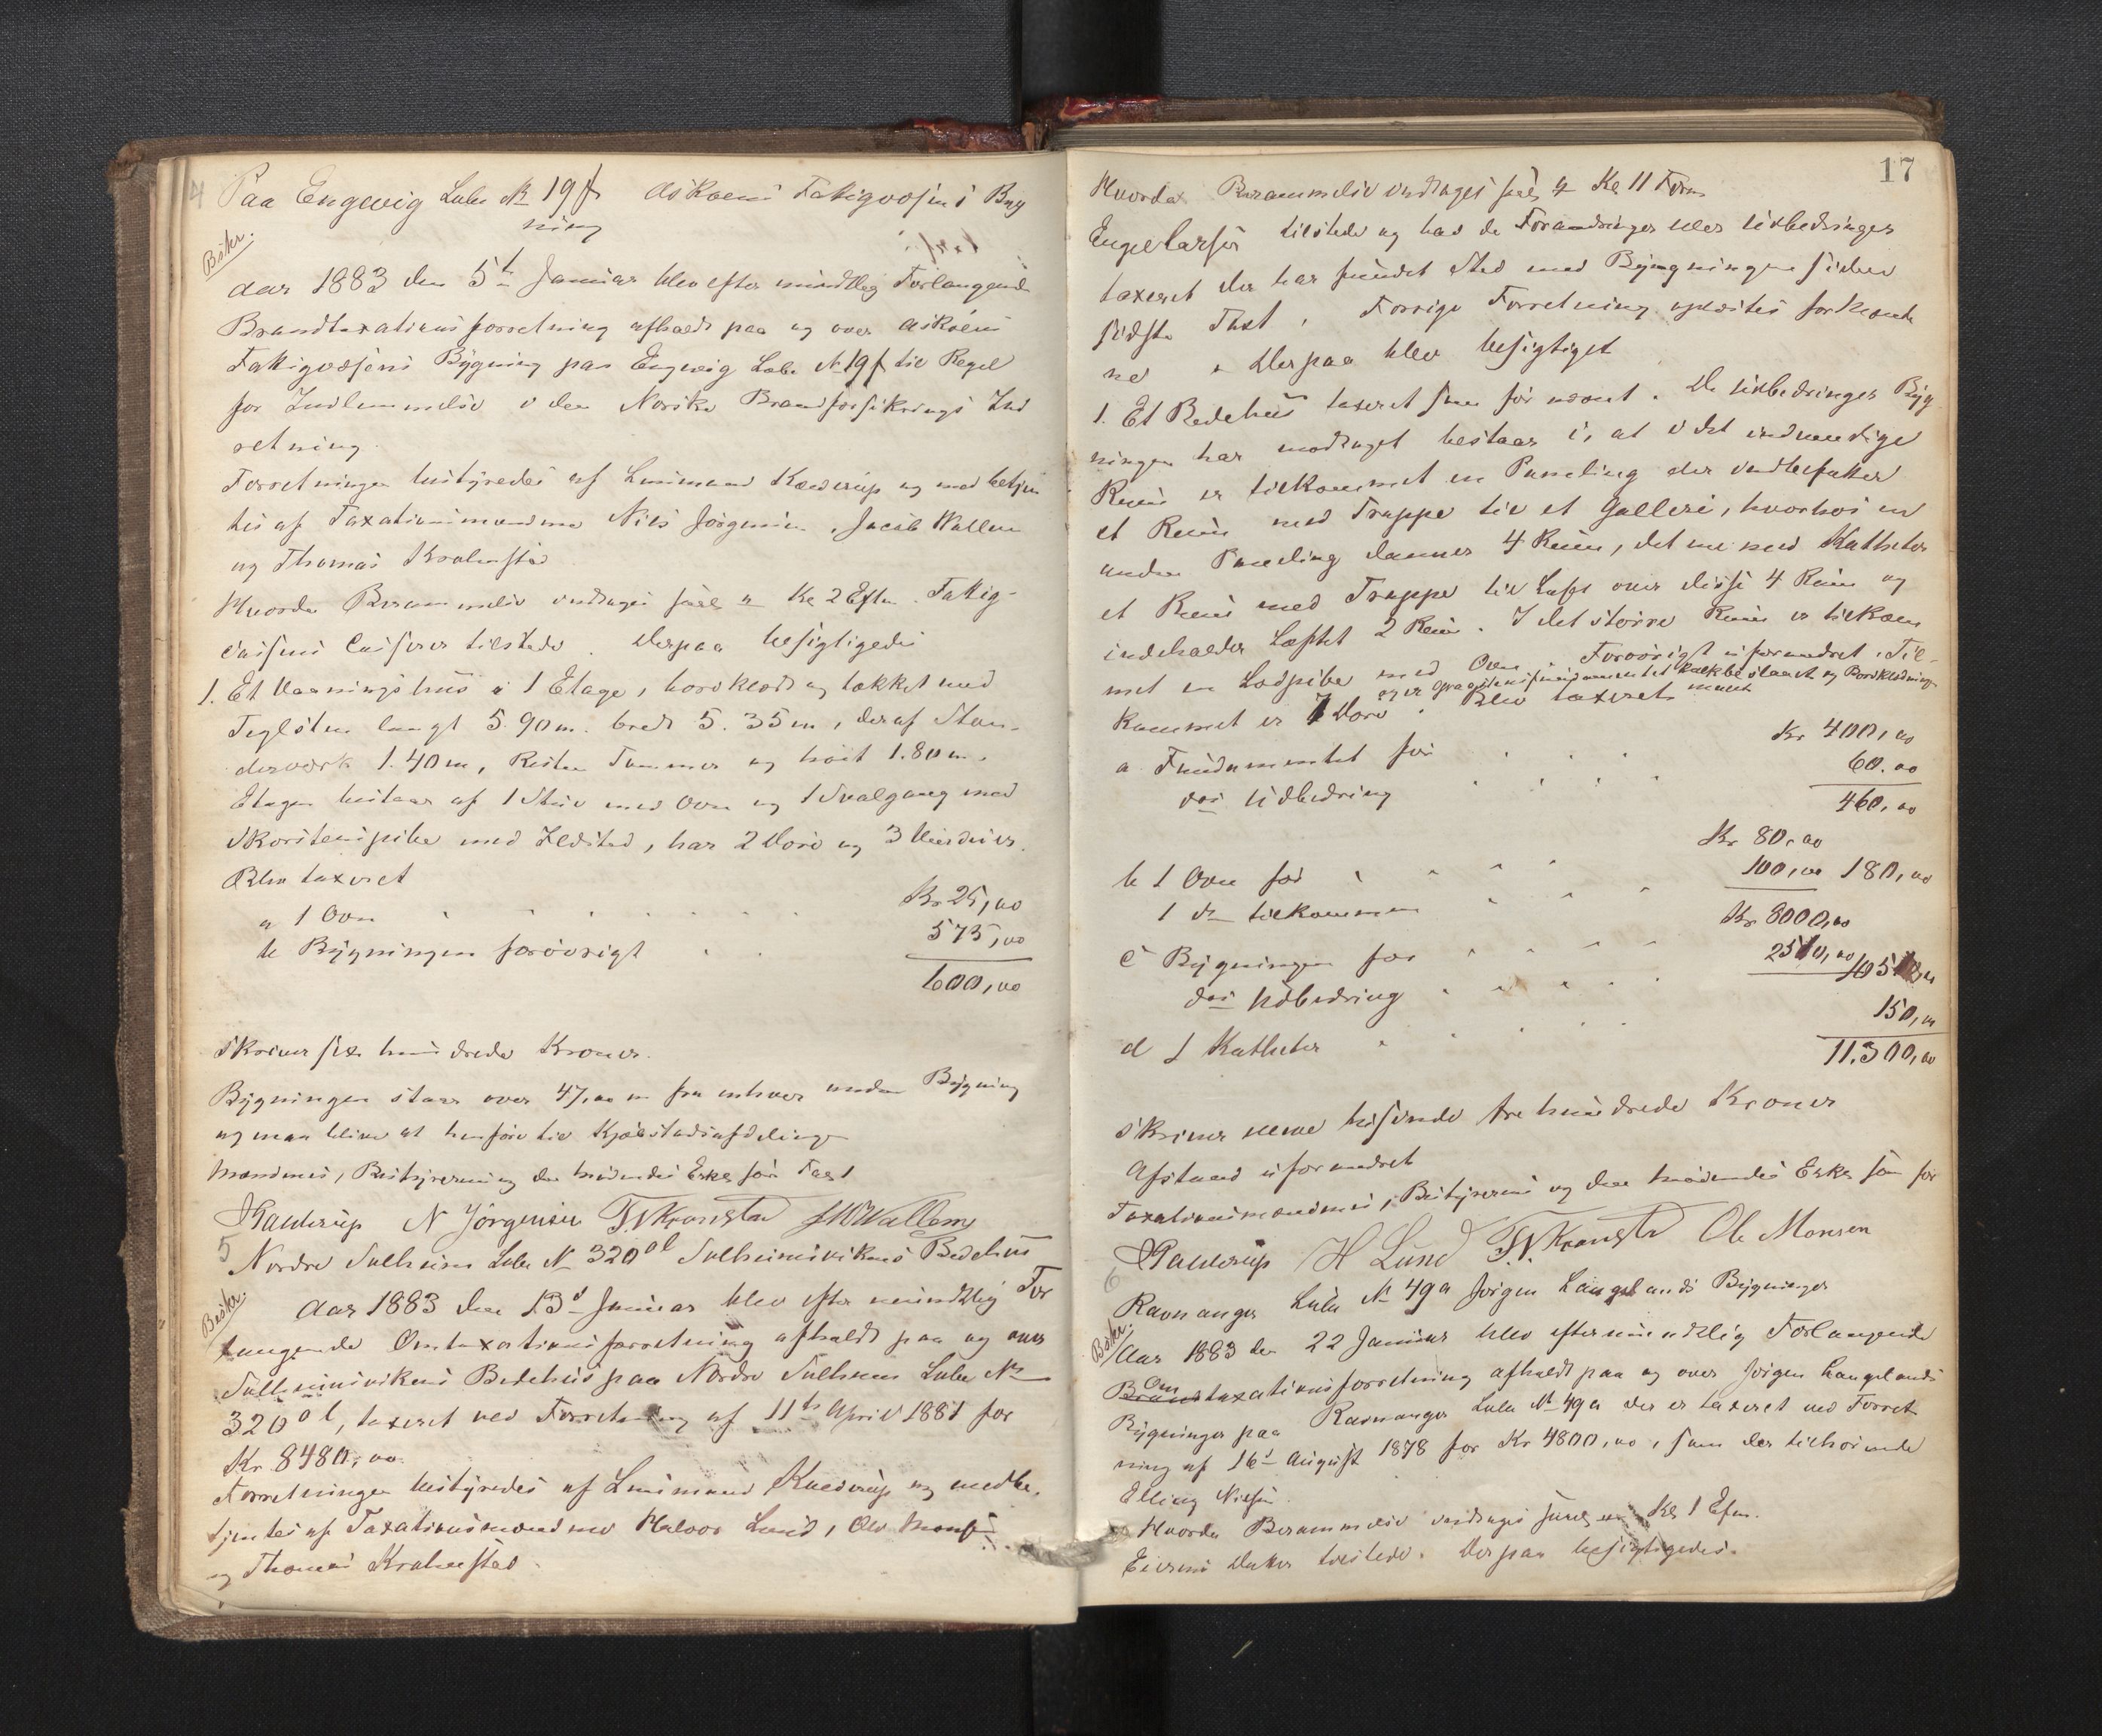 4 Paa Engevig Lube № 19 f Askøens Fattigvæsens Byg
ning
Beskr.
Aar 1883 den 5t Januar blev efter mundtlig Forlangende
Brandtaxationsforretning afholdt paa og over Askøens
Fattigvæsens Bygning paa Engevig Løbe № 19 f til Regel
for Indlemmelse i den Norske Brandforsikrings Ind
retning.
Forretningen bestyredes af Lensmand Kaldrup og med betjen
tes af Taxationsmændene Nils Jørgensen, Jacob Wallem
og Thomas Krohnstad
Hvorda Berammelse vedtages Kl 2 Efm. Fattig-
cassens Casserer tilstede. Derpaa besigtigedes
1. Et Vaaningshus i 1 Etage, bordklædt og tækket med
Teglsten langt 5.90 m. bredt 5.35 m, deraf Stan-
derværk 1.40 m, Resten Tømmer og høit 1.80 m.
Etagen bestaar af 1 Stue med Ovn og 1 Svalgang med
Skorstenspibe med Ildsted, har 2 Døre og 3 Vinduer.
Blev taxeret
a 1 Ovn Kr 25,00
b Bygningen forøvrigt 575,00
600,00
skriver sex hundrede Kroner.
Bygningen staar over 47,00 m fra enhver anden Bygning
og maa blive at henføre til Kjøbstadsafdelingen
Mændenes, Bestyrerens og den mødendes Eske for Taxt
Kaldrup N Jørgensen T. Krohnstad J Wallem
5 Nordre Solheim Lube № 320 ol Solheimsvikens Bedehus
Beskr.
Aar 1883 den 13d Januar blev efter mundtlig For
langende Omtaxationsforretning afholdt paa og over
Solheimsvikens Bedehus paa Nordre Solheim Lube №
320 ol, taxeret ved Forretning af 11te April 1881 for
Kr. 8480,00.
Forretningen bestyredes af Lensmand Kaldrup og medbe-
tjentes af Taxationsmændene Halvor Lund, Ole Mons
og Thomas Krohnstad.
17
Hvorda Berammelse vedtages Kl 11 Form
Engel Larsen tilstede og bad de Forandringer eller Udbedringer
taxeret der har fundet Sted med Bygningen siden
sidste Taxt. Forrige Forretning oplæstes forkomte
ne. Derpaa blev besigtiget
1. Et Bedehus taxeret som før nævnt. De Udbedringer Byg
ningen har modtaget bestaar i, at i det indvendige
Rum er tilkommet en Paneling der indbefatter
et Rum med Trappe til et Galleri, hvorhos en
anden Paneling danner 4 Rum, det ene med Katheter
et Rum med Trappe til Loft over disse 4 Rum og
indeholder Loftet 2 Rum. I det større Rum er tilkom
met en Lodpibe med Ovn. Forøvrigt uforandret. Til-
og er Graastensfundamentet kalkbeslaaet og Bordklædningen malet
kommet er 7 Døre. Blev taxeret
a Fundamentet før Kr 400,00
dets Udbedring 60.00
460,00
b 1 Ovn før Kr. 80,00
1 do tilkommen 100,00 180,00
c Bygningen før Kr 8000,00
dets Udbedring 2510,00 10510,00
d 1 Katheter 150,00
11.300,00
skriver elleve tusinde tre hundrede Kroner
Afstand uforandret
Taxationsmændenes, Bestyrerens og den mødendes Eske som før
Kaldrup H Lund T. Krohnstad Ole Monsen
6 Ravnanger Lube № 49 a Jørgen Langelands Bygninger
Beskr.
Aar 1883 den 22 Januar blev efter mundtlig Forlangende
Om
Brandtaxationsforretning afholdt paa og over Jørgen Langelands
Bygninger paa Ravnanger Lube № 49 a der er taxeret ved Forret
ning af 16d August 1878 for Kr 4800,00, som da tilhørende
Elling Nilsen.
Hvorda Berammelse vedtages Kl 1 Efm.
Eierens Datter tilstede. Derpaa besigtigedes.